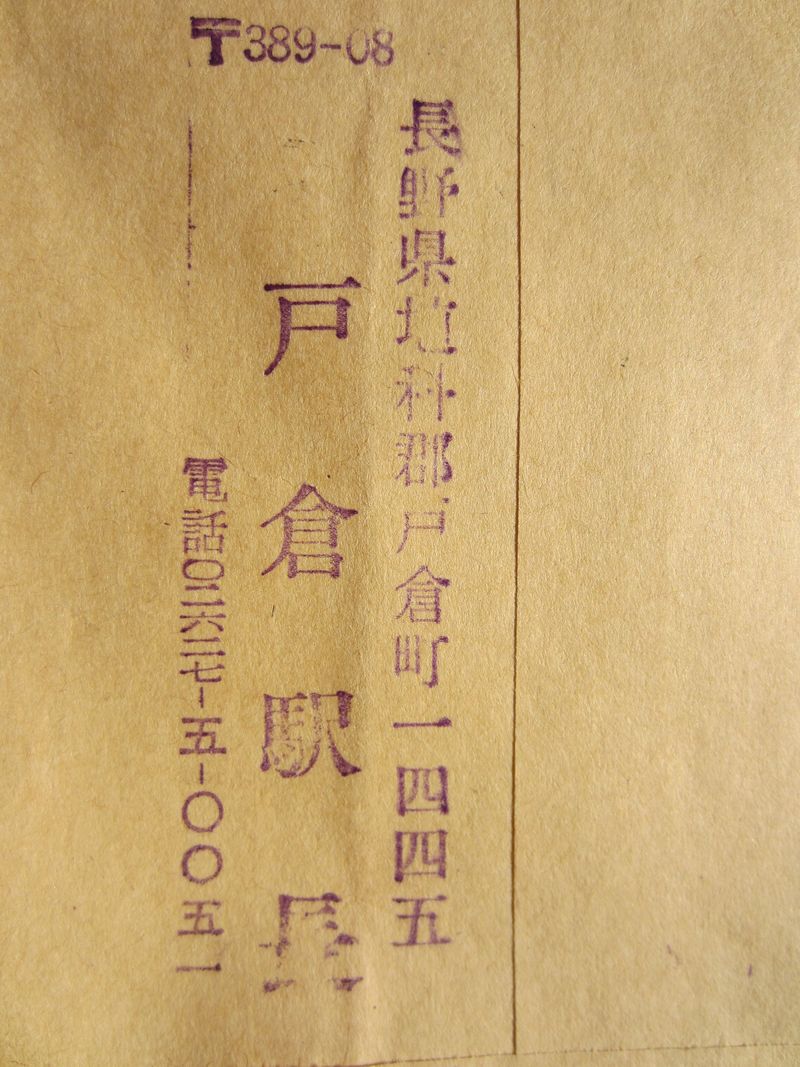 〒389-08
長野県埴科郡戸倉町一四四五
戸倉駅長
電話〇二六二七-五-〇〇五一